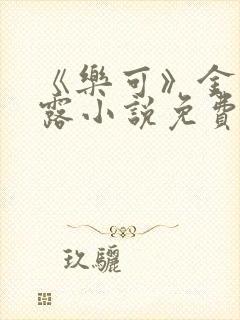 《樂可》金
露小說免費
玖驪